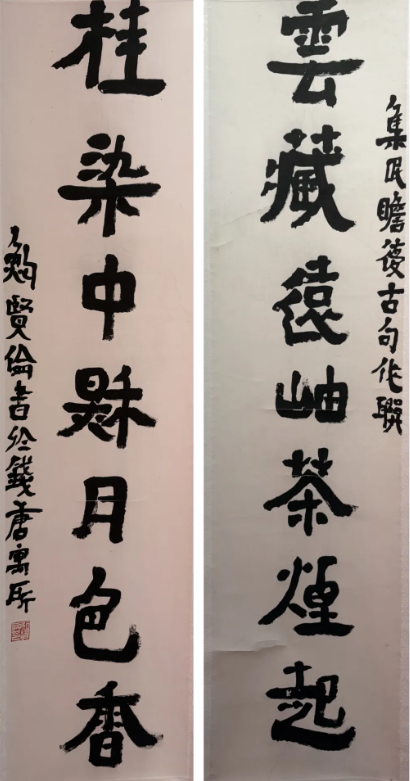 集民瞻復古句作聯
雲藏遠岫茶煙起
桂染中秋月色香
賢倫書於錢唐寓所